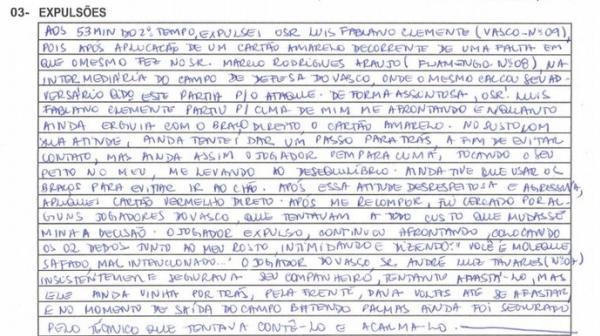 03- EXPULSÕES
AOS 53 MIN DO 2º TEMPO, EXPULSEI O SR. LUIS FABIANO CLEMENTE (VASCO-Nº 09),
POIS APÓS APLICAÇÃO DE UM CARTÃO AMARELO DECORRENTE DE UMA FALTA EM
QUE O MESMO FEZ NO SR. MARCIO RODRIGUES ARAUJO (FLAMENGO Nº 08), NA
INTERMEDIÁRIA DO CAMPO DE DEFESA DO VASCO, ONDE O MESMO CALÇOU SEU AD-
VERSÁRIO QDO ESTE PARTIA P/O ATAQUE. DE FORMA ACINTOSA, O SR. LUIS
FABIANO CLEMENTE PARTIU P/ CIMA DE MIM ME AFRONTANDO ENQUANTO
AINDA ERGUIA COM O BRAÇO DIREITO, O CARTÃO AMARELO. NO SUSTO COM
SUA ATITUDE, AINDA TENTEI DAR UM PASSO PARA TRÁS, A FIM DE EVITAR
CONTATO, MAS AINDA ASSIM O JOGADOR VEM PARA CIMA, TOCANDO O SEU
PEITO NO MEU, ME LEVANDO AO DESEQUILÍBRIO. AINDA TIVE QUE USAR OS
BRAÇOS PARA EVITAR IR AO CHÃO. APÓS ESSA ATITUDE DESRESPEITOSA E AGRESSIVA,
APLIQUEI CARTÃO VERMELHO DIRETO. APÓS ME RECOMPOR, FUI CERCADO POR AL-
GUNS JOGADORES DO VASCO, QUE TENTAVAM A TODO CUSTO QUE MUDASSE
MINHA DECISÃO. O JOGADOR EXPULSO, CONTINUOU AFRONTANDO, COLOCANDO
OS 02 DEDOS JUNTO AO MEU ROSTO, INTIMIDANDO E DIZENDO: "VOCÊ É MOLEQUE
SAFADO, MAL INTENCIONADO..." O JOGADOR DO VASCO, SR. ANDRÉ LUIZ TAVARES (Nº 07)
INSISTENTEMENTE SEGURAVA SEU COMPANHEIRO, TENTANTO AFASTÁ-LO, MAS
ELE AINDA VINHA POR TRÁS, PELA FRENTE, DAVA VOLTAS ATÉ SE AFASTAR
E NO MOMENTO DE SAÍDA DO CAMPO BATENDO PALMAS AINDA FOI SEGURADO
PELO TÉCNICO QUE TENTAVA CONTÊ-LO E ACALMÁ-LO.